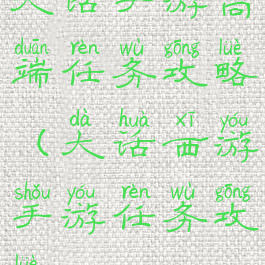 大话手游高
duān rèn wù gōng lüè
端任务攻略
dà huà xī yóu
（大话西游
shǒu yóu rèn wù gōng
手游任务攻
lüè